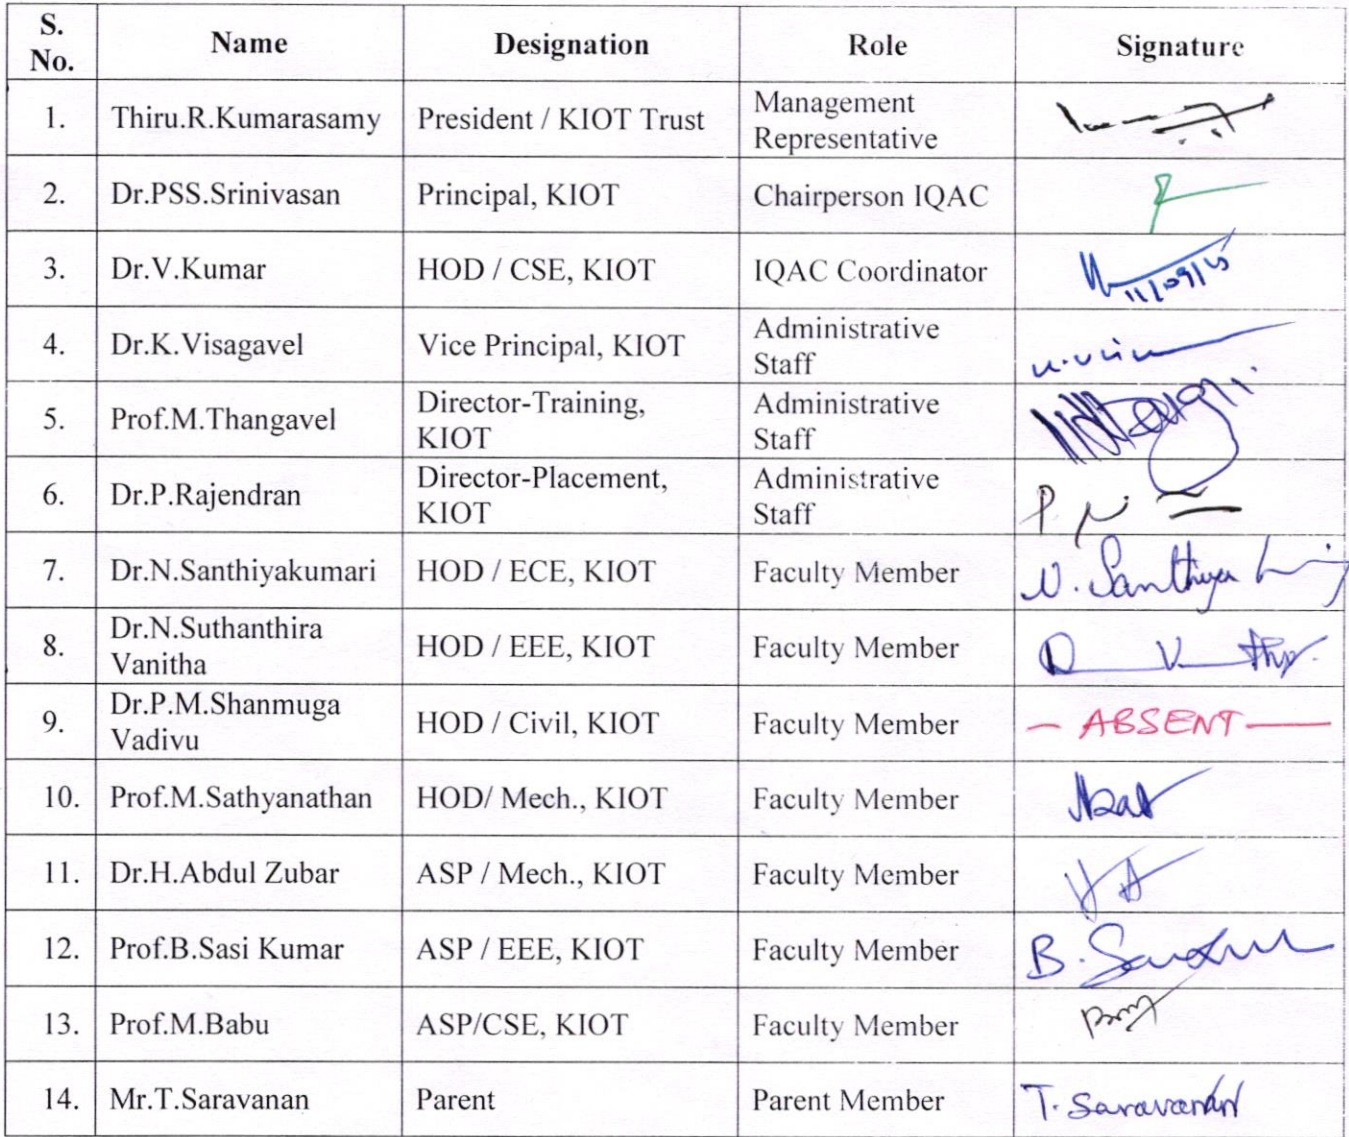 S. No. Name Designation Role Signature
1. Thiru.R.Kumarasamy President / KIOT Trust Management Representative
2. Dr.PSS.Srinivasan Principal, KIOT Chairperson IQAC
3. Dr.V.Kumar HOD / CSE, KIOT IQAC Coordinator 11/09/15
4. Dr.K.Visagavel Vice Principal, KIOT Administrative Staff
5. Prof.M.Thangavel Director-Training, KIOT Administrative Staff
6. Dr.P.Rajendran Director-Placement, KIOT Administrative Staff
7. Dr.N.Santhiyakumari HOD / ECE, KIOT Faculty Member N. Santhiya
8. Dr.N.Suthanthira Vanitha HOD / EEE, KIOT Faculty Member
9. Dr.P.M.Shanmuga Vadivu HOD / Civil, KIOT Faculty Member - ABSENT -
10. Prof.M.Sathyanathan HOD/ Mech., KIOT Faculty Member
11. Dr.H.Abdul Zubar ASP / Mech., KIOT Faculty Member
12. Prof.B.Sasi Kumar ASP / EEE, KIOT Faculty Member B.
13. Prof.M.Babu ASP/CSE, KIOT Faculty Member
14. Mr.T.Saravanan Parent Parent Member T. Saravanan